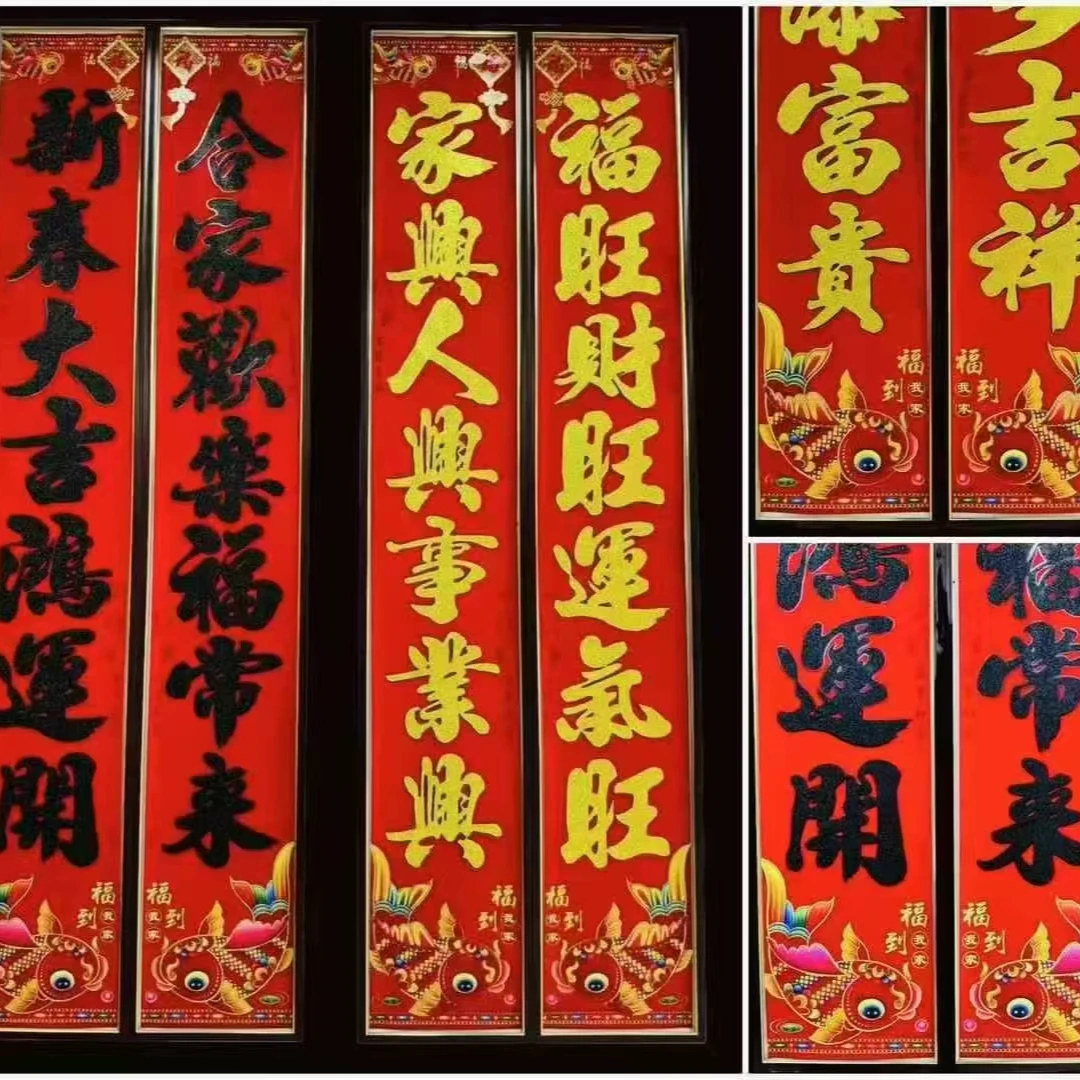 新春大吉鴻運開
合家歡樂福常來
家興人興事業興
福旺財旺運氣旺
富貴
吉祥
鴻運開
福常來
福到
我家
福到
我家
福到
我家
福到
我家
福到
我家
福到
我家
福到
我家
福到
我家